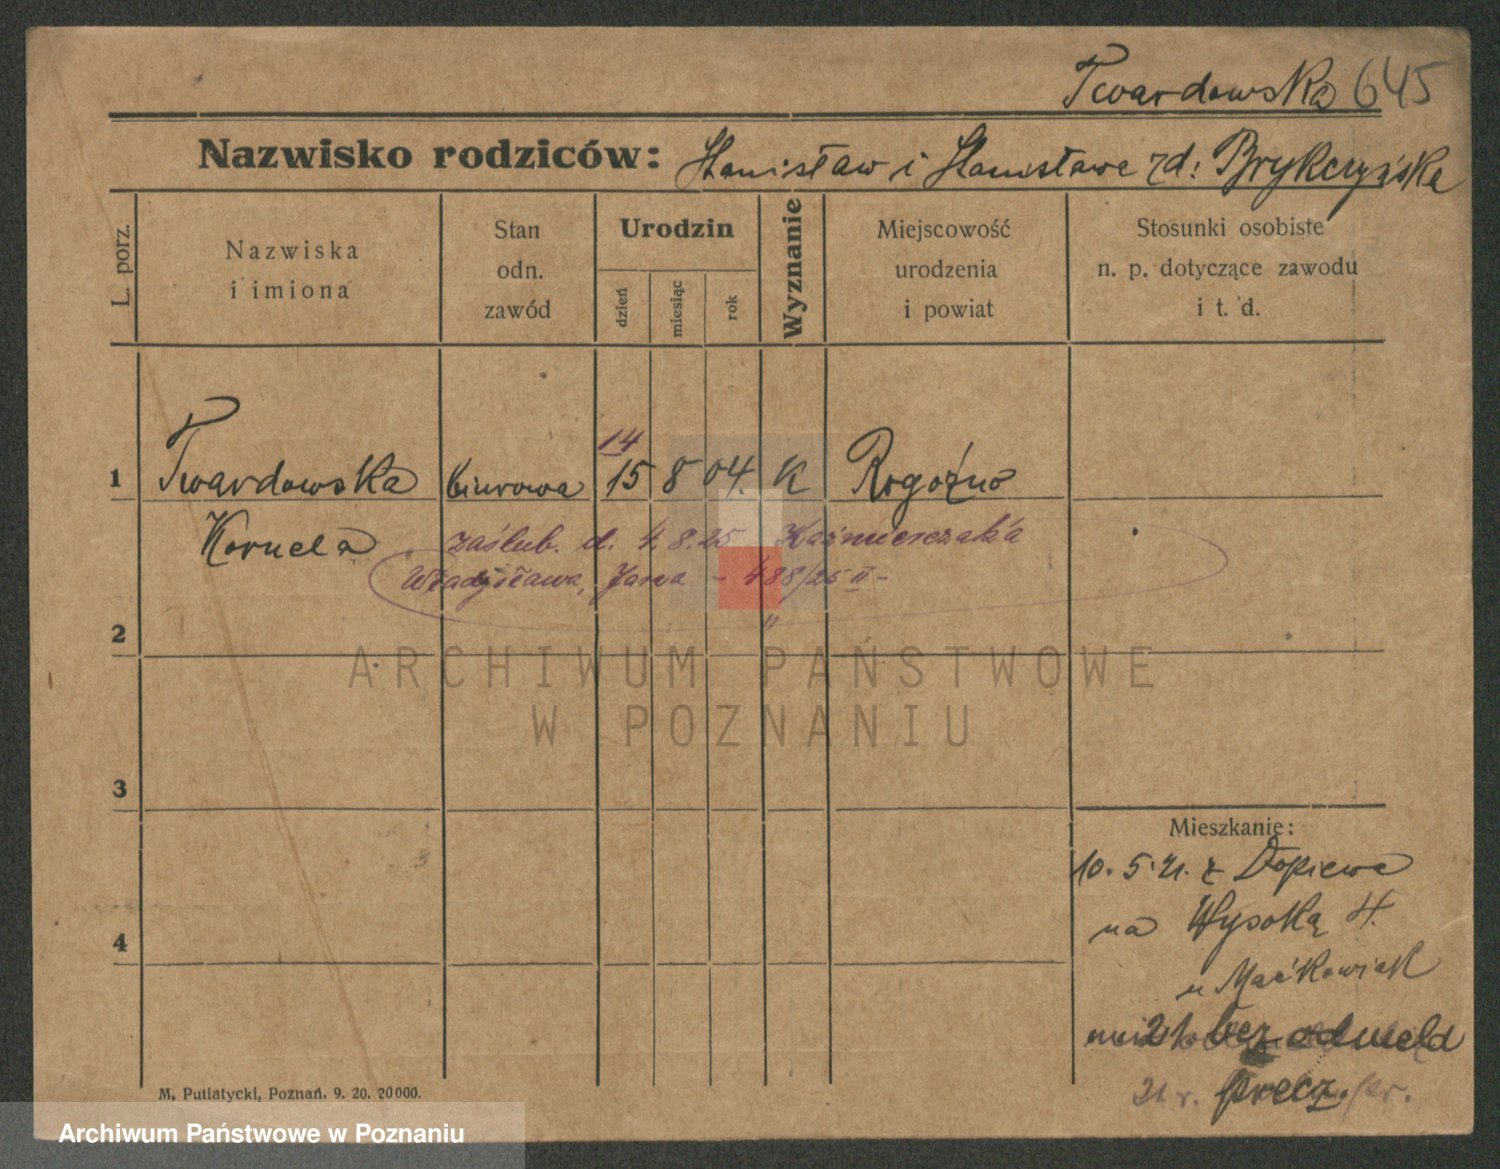 Twardowska 645
Nazwisko rodziców: Stanisław i Stanisława zd: Brykczyńska
L. porz.
Nazwiska i imiona
Stan odn. zawód
Urodzin
dzień
miesiąc
rok
Wyznanie
Miejscowość urodzenia i powiat
Stosunki osobiste n. p. dotyczące zawodu i t. d.
14
1 Twardowska biurowa 15 8 04. K Rogoźno
Kornela zaślub. d. 4.8.25 Kaźmierczaka
Władysława, Jana - 488/25 II -
2
ARCHIWUM PAŃSTWOWE
W POZNANIU
3
Mieszkanie:
10. 5. 21. z Dopiewa
4
na Wysoką 4.
u Maćkowiak
21 bez odmeld
21 r. precz. pr.
M. Putiatycki, Poznań. 9. 20. 20000.
Archiwum Państwowe w Poznaniu